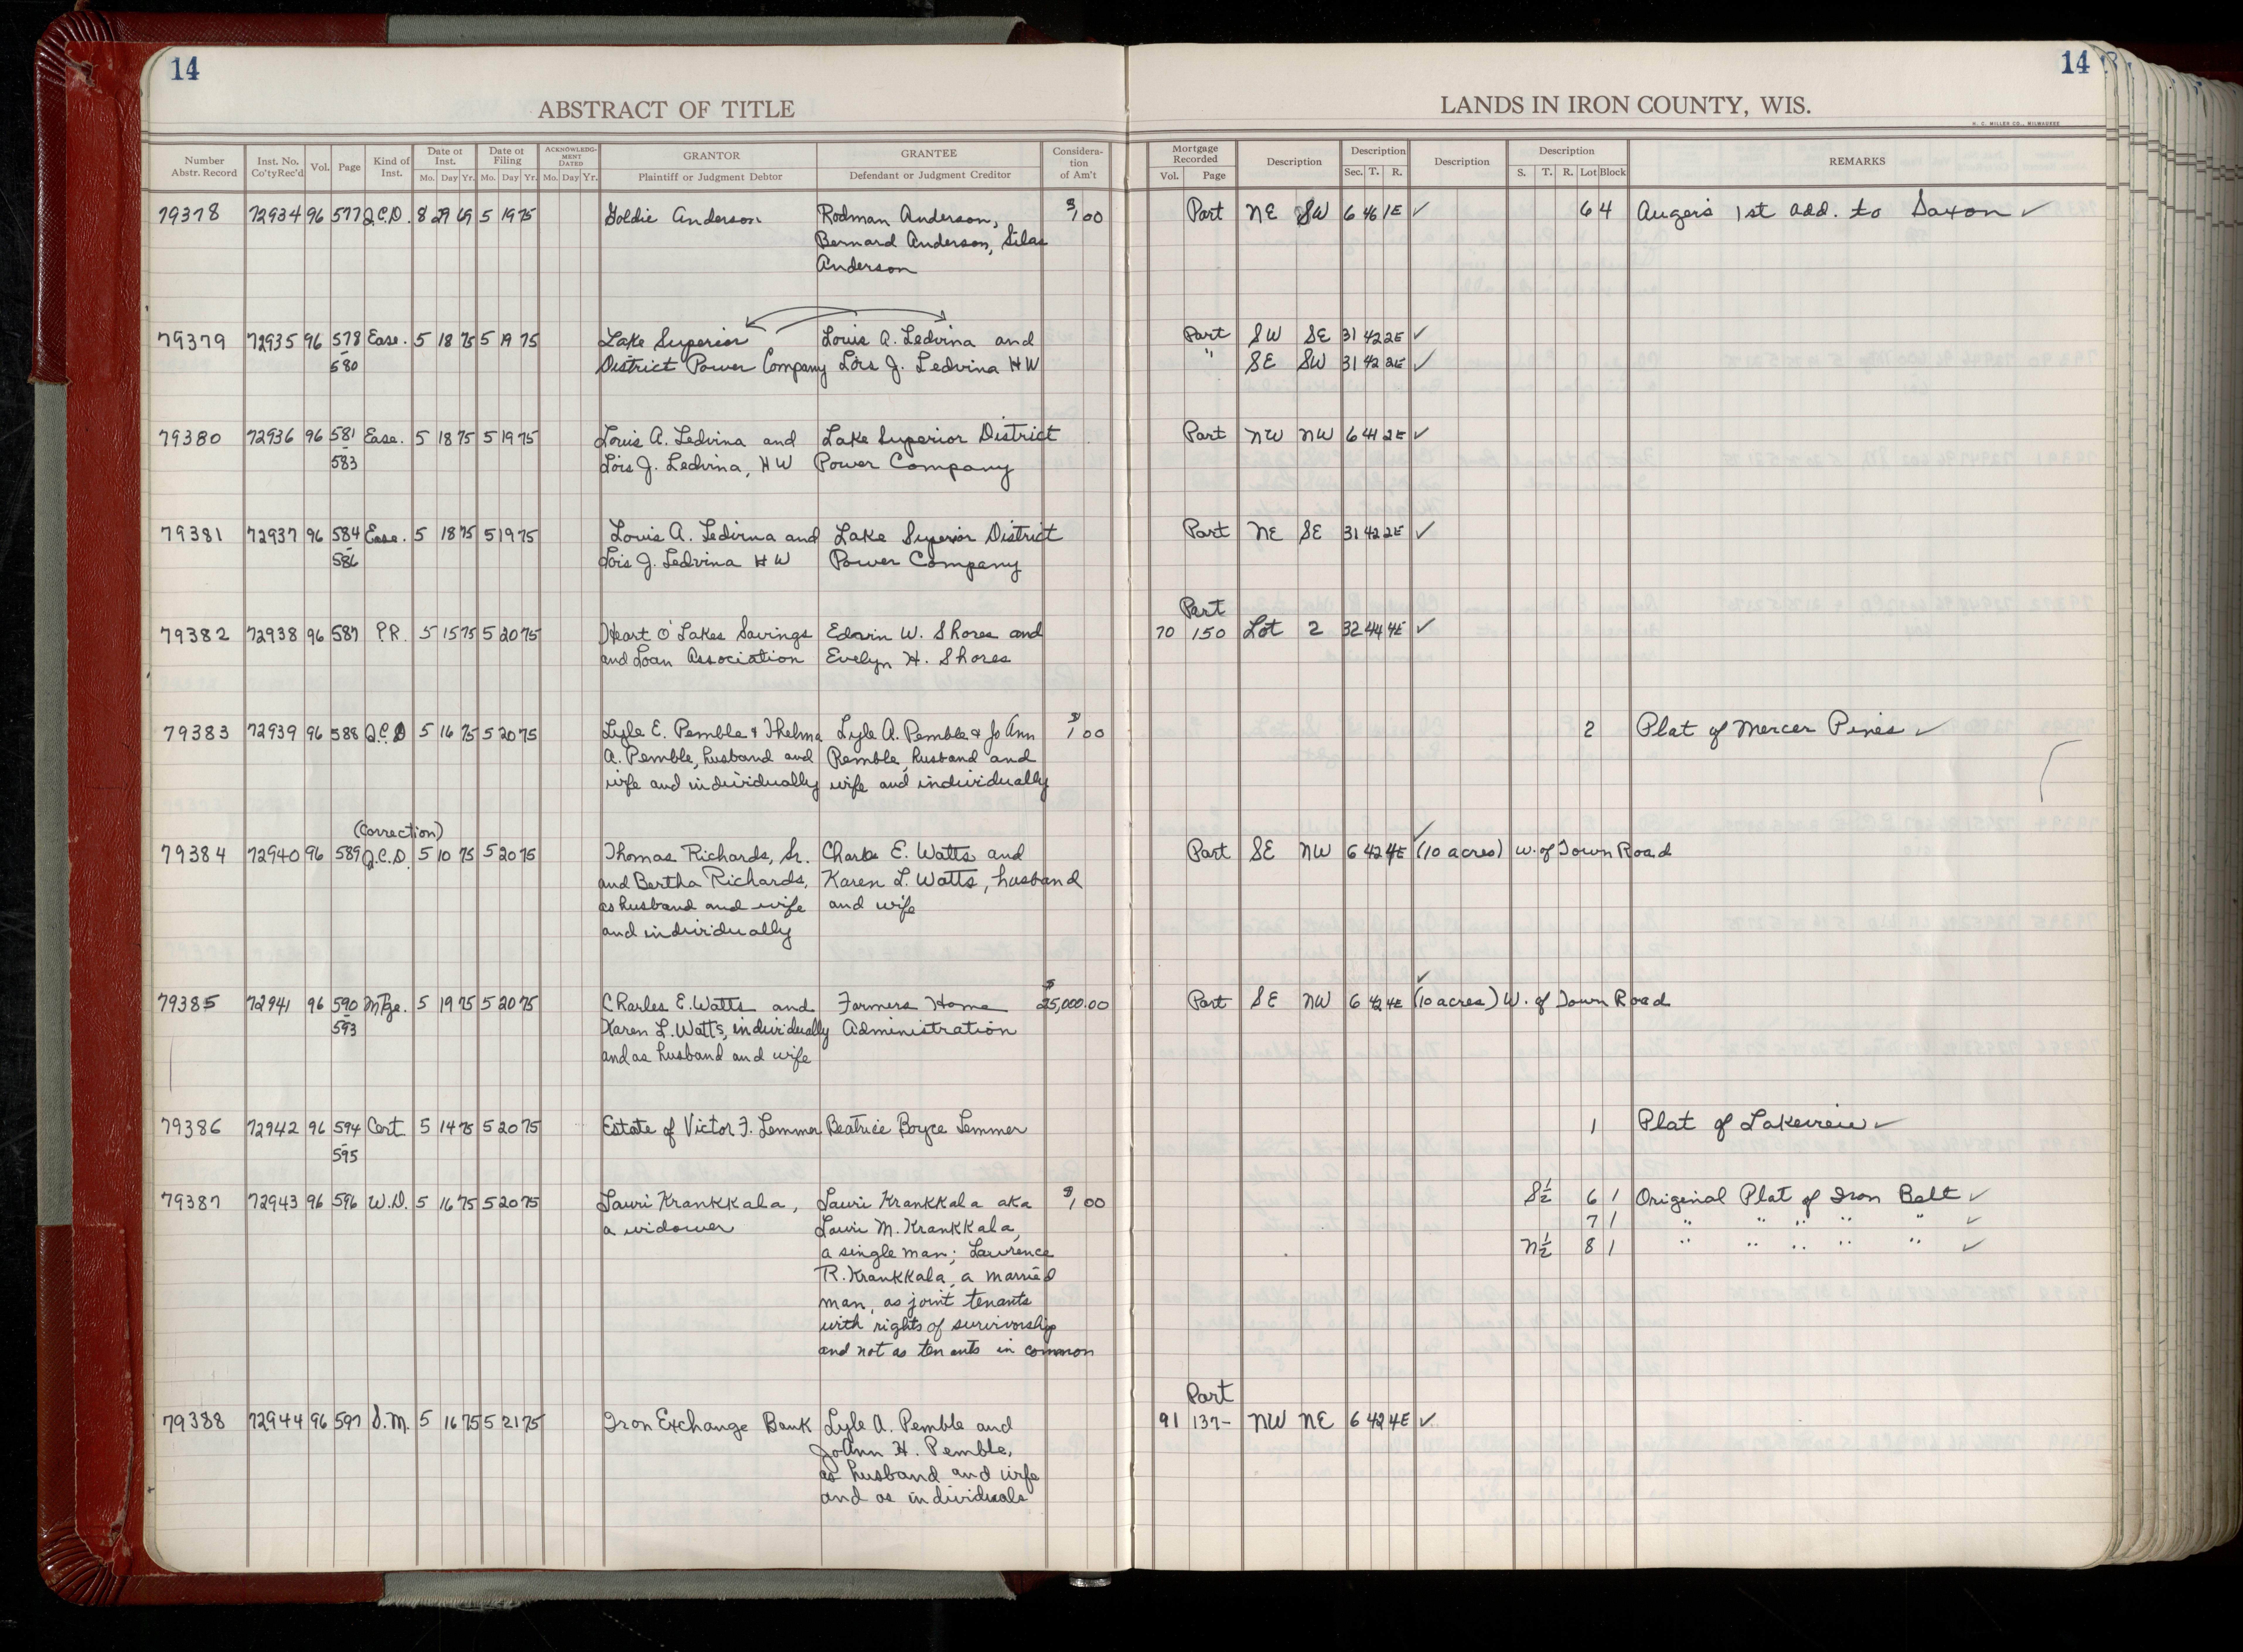 14
14
ABSTRACT OF TITLE
LANDS IN IRON COUNTY, WIS.
H. C. MILLER CO., MILWAUKEE
Number Abstr. Record Inst. No. Co'tyRec'd Vol. Page Kind of Inst. Date of Inst. Mo. Day Yr. Date of Filing Mo. Day Yr. ACKNOWLEDGMENT DATED Mo. Day Yr. GRANTOR Plaintiff or Judgment Debtor GRANTEE Defendant or Judgment Creditor Consideration of Am't Mortgage Recorded Vol. Page Description Description Sec. T. R. Description Description S. T. R. Lot Block REMARKS
79378 72934 96 577 Q.C.D. 8 29 69 5 19 75 Goldie Anderson Rodman Anderson, $1,00 Part NE SW 6 46 1E ✓ 6 4 Auger's 1st add. to Saxon ✓
Bernard Anderson, Silas
Anderson
79379 72935 96 578 Ease. 5 18 75 5 19 75 Lake Superior Louis A. Ledvina and Part SW SE 31 42 2E ✓
- 580 District Power Company Lois J. Ledvina HW " SE SW 31 42 2E ✓
79380 72936 96 581 Ease. 5 18 75 5 19 75 Louis A. Ledvina and Lake Superior District Part NW NW 6 41 2E ✓
583 Lois J. Ledvina, HW Power Company
79381 72937 96 584 Ease. 5 18 75 5 19 75 Louis A. Ledvina and Lake Superior District Part NE SE 31 42 2E ✓
- 586 Lois J. Ledvina HW Power Company
Part
79382 72938 96 587 P.R. 5 15 75 5 20 75 Heart O' Lakes Savings Edwin W. Shores and 70 150 Lot 2 32 44 4E ✓
and Loan Association Evelyn H. Shores
79383 72939 96 588 Q.C.D 5 16 75 5 20 75 Lyle E. Pemble & Thelma Lyle A. Pemble & Jo Ann $1,00 2 Plat of Mercer Pines ✓
A. Pemble, husband and Pemble, husband and
wife and individually wife and individually
(Correction)
79384 72940 96 589 Q.C.D. 5 10 75 5 20 75 Thomas Richards, Sr. Charles E. Watts and Part SE NW 6 42 4E (10 acres) W. of Town Road
and Bertha Richards, Karen L. Watts, husband
as husband and wife and wife
and individually
79385 72941 96 590 Mtge. 5 19 75 5 20 75 Charles E. Watts and Farmers Home $25,000.00 Part SE NW 6 42 4E (10 acres) W. of Town Road
- 593 Karen L. Watts, individually Administration
and as husband and wife
79386 72942 96 594 Cert 5 14 75 5 20 75 Estate of Victor F. Lemmer Beatrice Boyce Lemmer 1 Plat of Lakeview ✓
- 595
79387 72943 96 596 W.D. 5 16 75 5 20 75 Lauri Krankkala, Lauri Krankkala aka $1,00 S½ 6 1 Original Plat of Iron Belt ✓
a widower Lauri M. Krankkala, 7 1 " " " " " ✓
a single man; Lawrence N½ 8 1 " " " " " ✓
R. Krankkala, a married
man, as joint tenants
with rights of survivorship
and not as tenants in common
Part
79388 72944 96 597 S.M. 5 16 75 5 21 75 Iron Exchange Bank Lyle A. Pemble and 91 137- NW NE 6 42 4E ✓
JoAnn H. Pemble,
as husband and wife
and as individuals